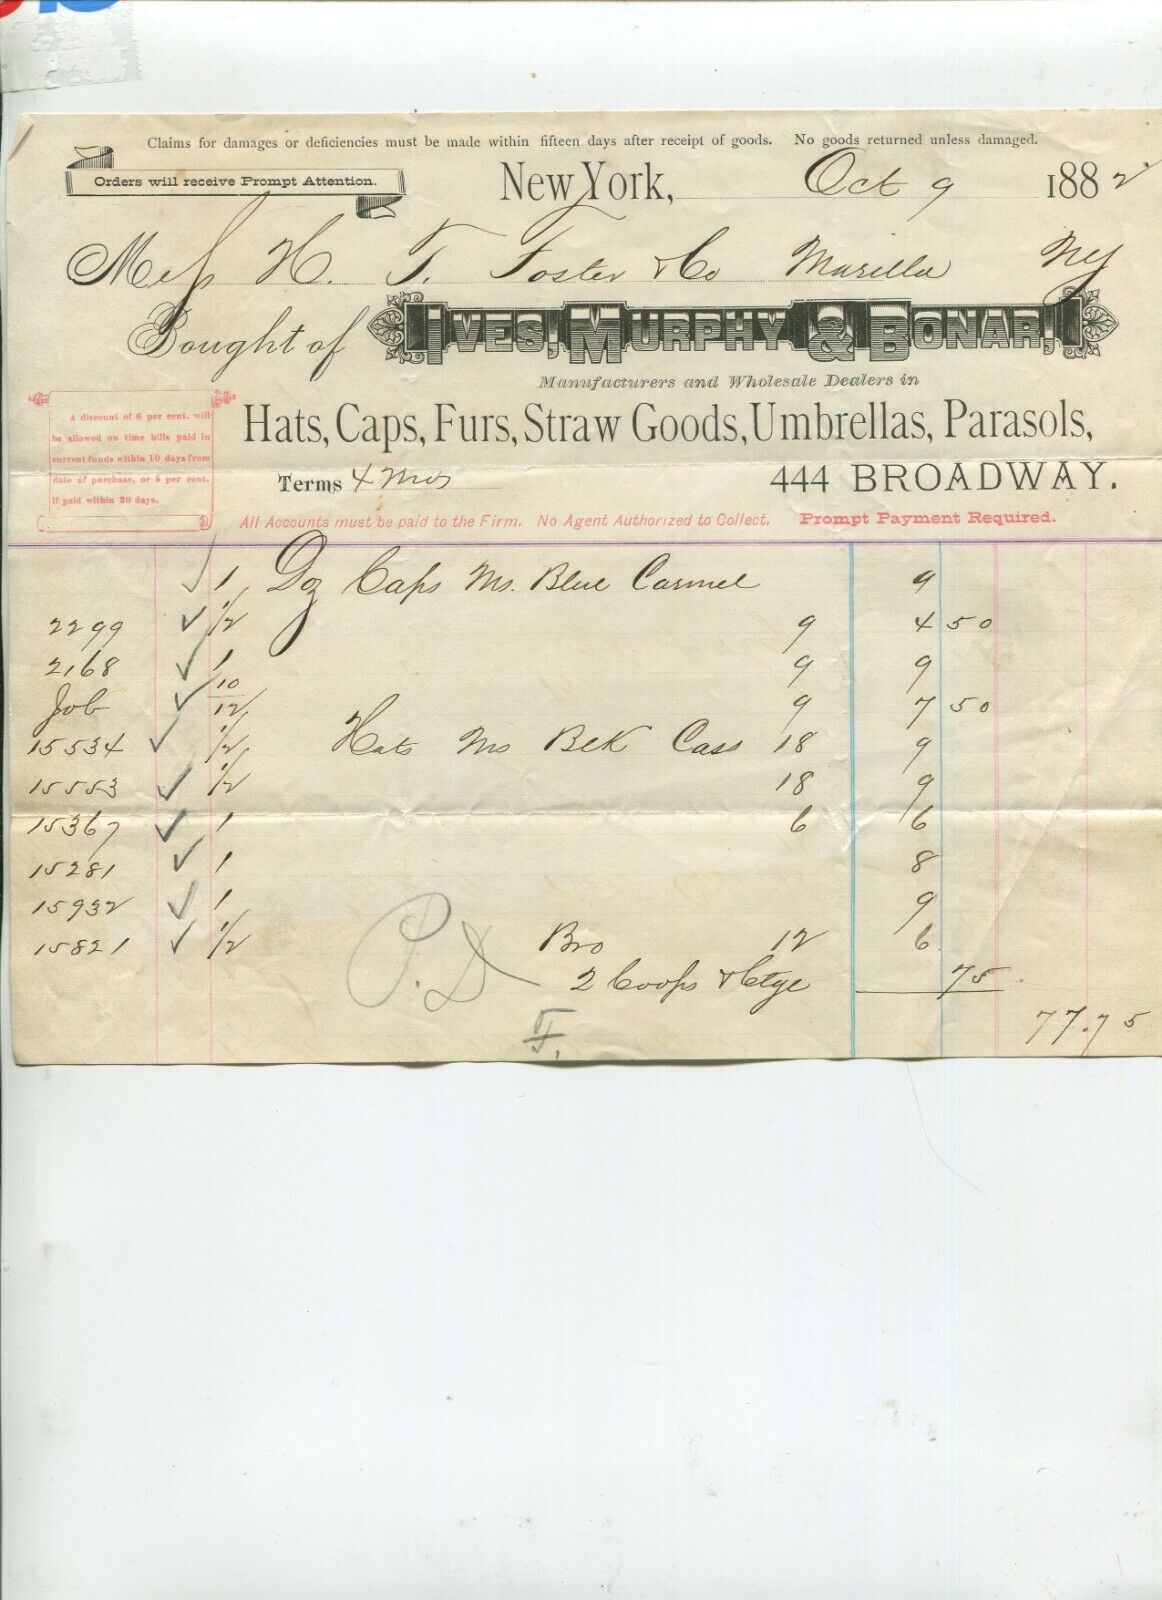 Claims for damages or deficiencies must be made within fifteen days after receipt of goods. No goods returned unless damaged.
Orders will receive Prompt Attention.
New York, Oct 9 1882
Mess H. T. Foster & Co Marilla NY
Bought of IVES, MURPHY & BONAR,
Manufacturers and Wholesale Dealers in
Hats, Caps, Furs, Straw Goods, Umbrellas, Parasols,
A discount of 6 per cent. will
be allowed on time bills paid in
current funds within 10 days from
date of purchase, or 5 per cent.
if paid within 30 days.
Terms 4 Mos 444 BROADWAY.
All Accounts must be paid to the Firm. No Agent Authorized to Collect. Prompt Payment Required.
✓ 1 Doz Caps Ms. Blue Carmel 9
2299 ✓ 1/2 9 4 50
2168 ✓ 1 9 9
Job ✓ 10/12 9 7 50
15534 ✓ 1/2 Hats Ms Blk Cass 18 9
15553 ✓ 1/2 18 9
15367 ✓ 1 6 6
15281 ✓ 1 8
15932 ✓ 1 9
15821 ✓ 1/2 Bro 12 6
P.D 2 Coops & Ctge 75
77.75